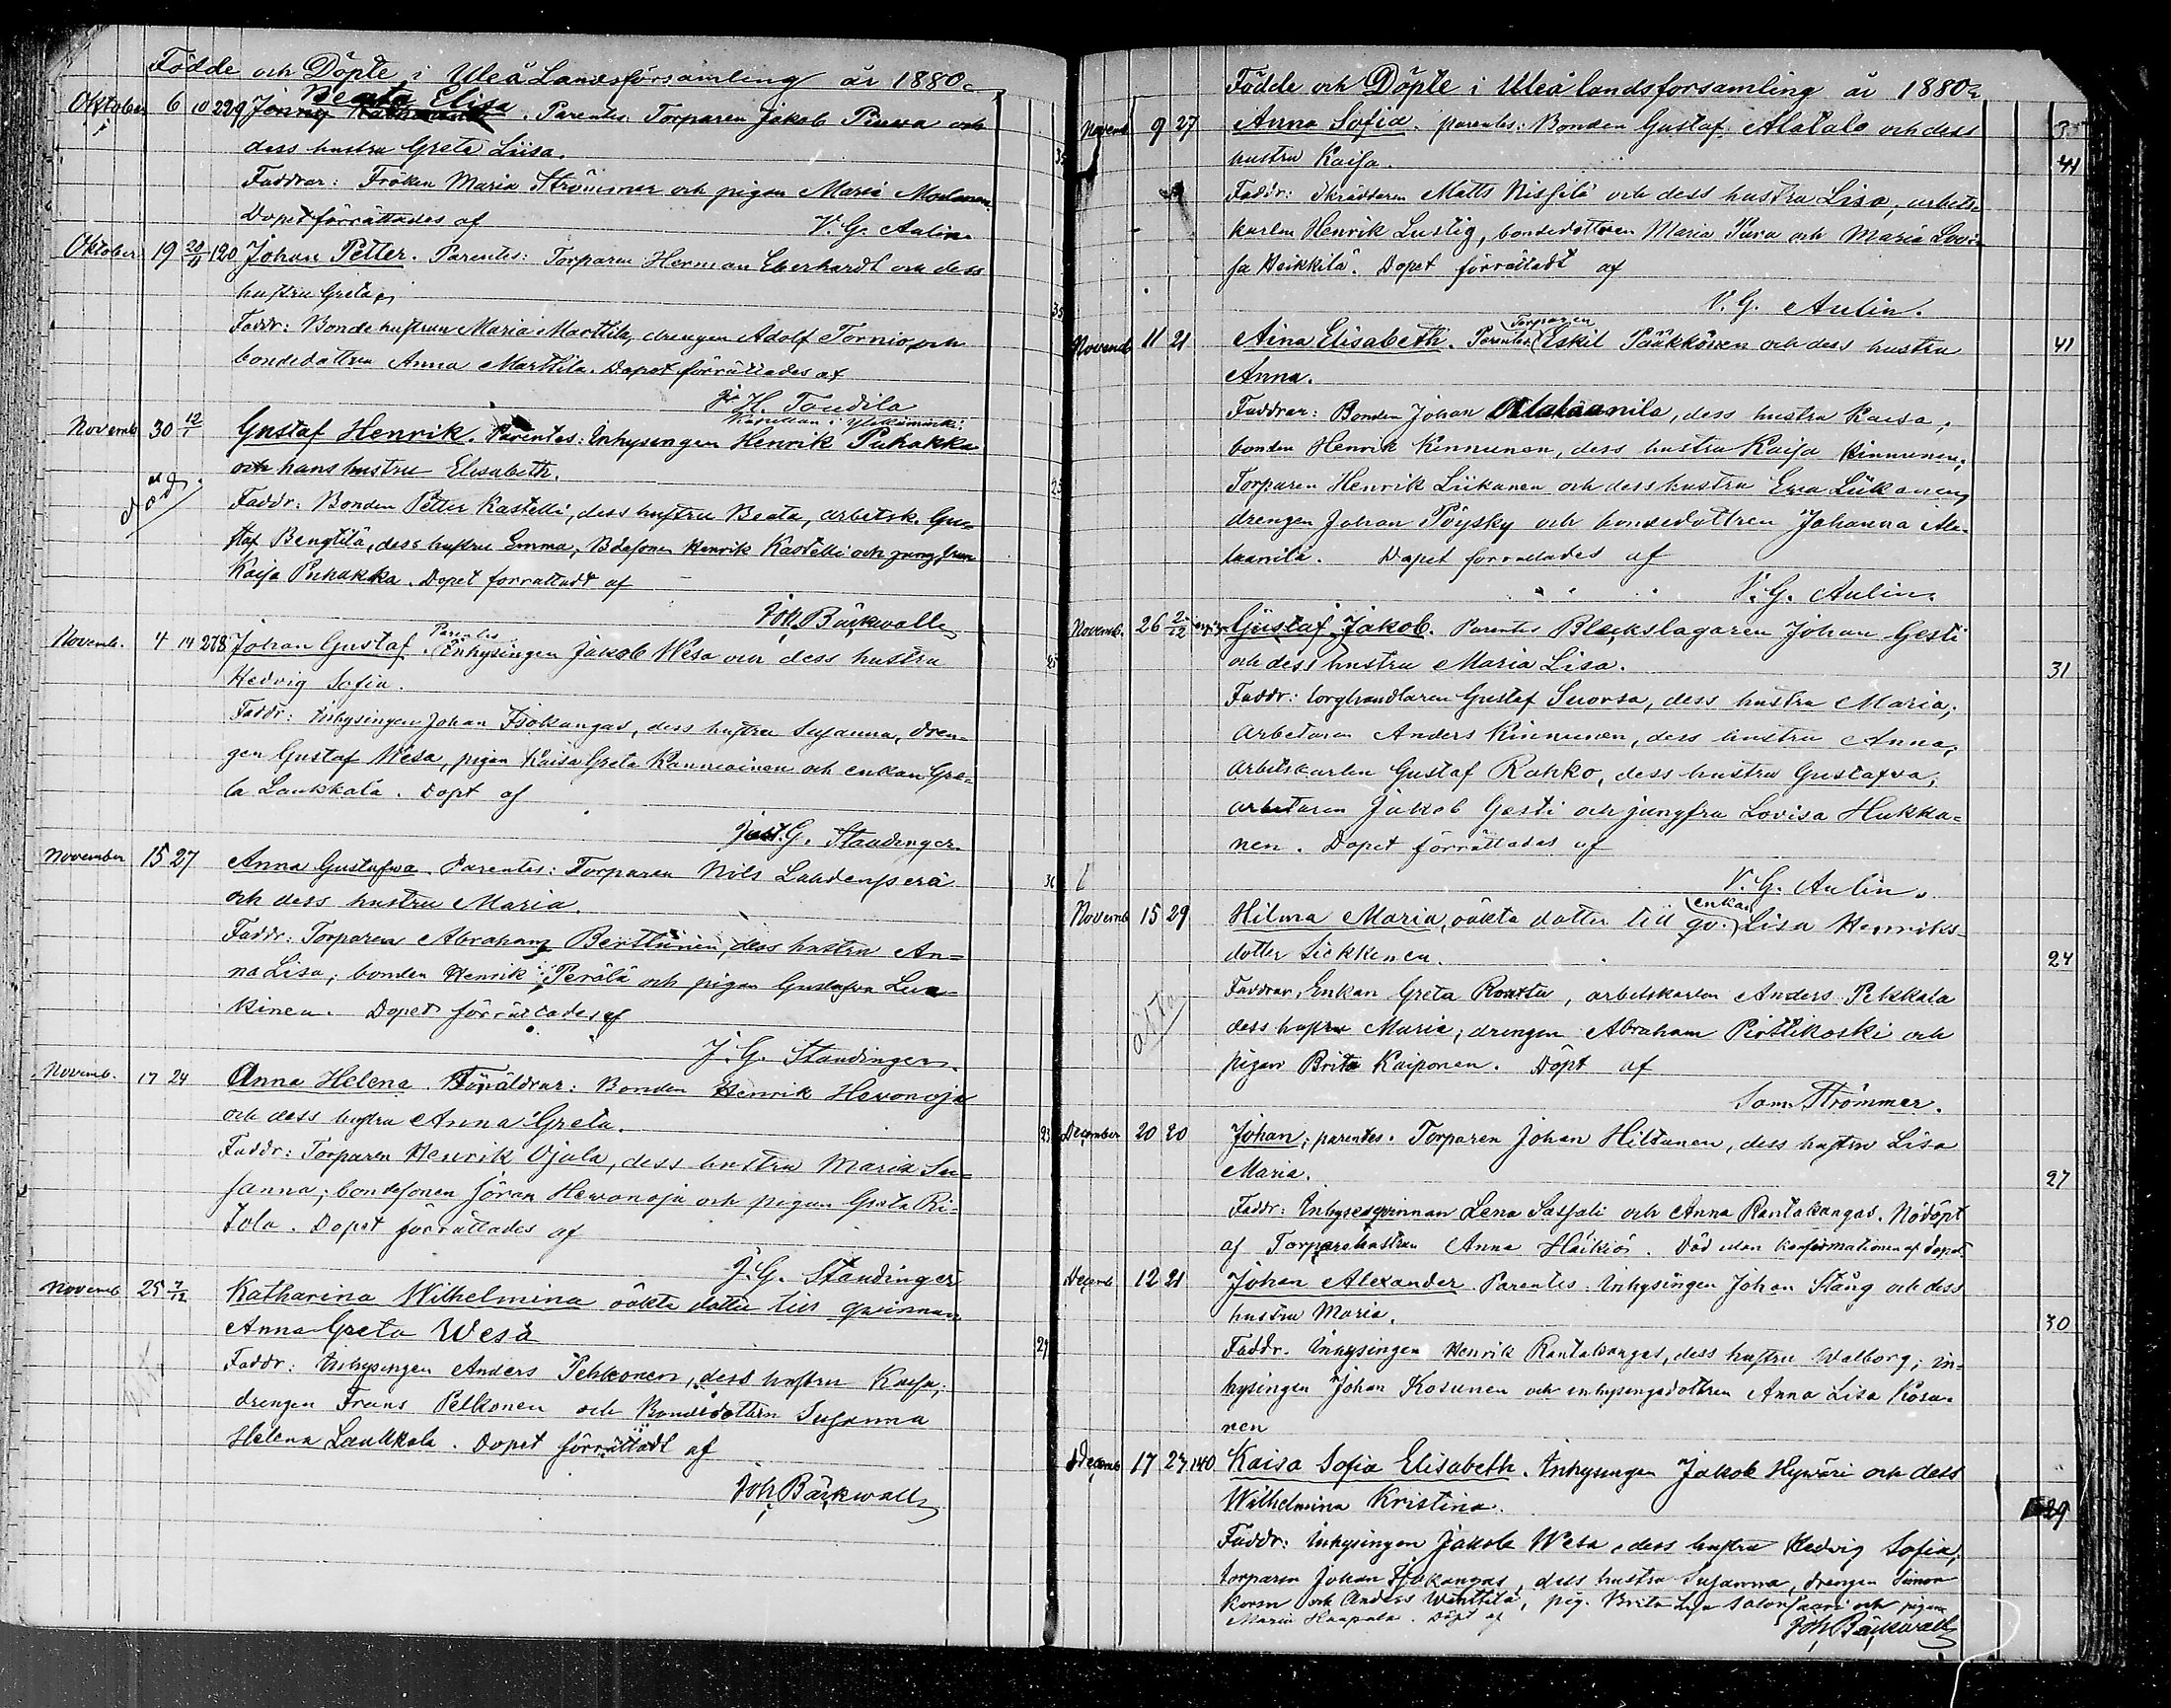 Födde och Döpte i Uleå Landsförsamling år 1880.
Beata Elisa
Oktober 6 10 229 Jenny . Parentes Torparen Jakob Piuva och
dess hustru Greta Liisa. 35
Faddrar: Fröken Maria Strömmer och pigan Maria
Dopet förrättades af V. G. Aulin.
Oktober 19 20/11 120 Johan Petter. Parentes: Torparen Herman Eberhardt och dess
hustru Greta. 35
Faddr: Bondehustrun Maria Marttila, drengen Adolf Tornio och
bondedottren Anna Marttila. Dopet förrättades af
H. Toudila
Novemb 30 12/1 Gustaf Henrik. Parentes: Inhysingen Henrik Puhakka
och hans hustru Elisabeth. 25
död.
Faddr: Bonden Petter Kastelli, dess hustru Beata, arbetsk. Gu-
staf Bengtilä, dess hustru Emma, Bdesonen Henrik Kastelli och jungfrun
Kaisa Puhakka. Dopet förrättadt af
Joh. Bäckwall
Novemb. 4 14 278 Johan Gustaf. Parentes Inhysingen Jakob Wesa och dess hustru 25
Hedvig Sofia.
Faddr: Inhysingen Johan Isokangas, dess hustru Susanna, dren-
gen Gustaf Wesa, pigan Kaisa Greta Kanniainen och enkan Gre-
ta Laukkala. Döpt af
Just. G. Staudinger.
November 15 27 Anna Gustafva. Parentes: Torparen Nils Lahdenperä
och dess hustru Maria.
Faddr: Torparen Abraham Berttunen, dess hustru An-
na Lisa; bonden Henrik Perälä och pigan Gustafva Lua-
kinen. Dopet förrättades af
J. G. Staudinger.
Novemb. 17 24 Anna Helena. Föräldrar: Bonden Henrik Hevonoja
och dess hustru Anna Greta. 23
Faddr: Torparen Henrik Ojala, dess hustru Maria Su-
sanna; bondesonen Jöran Hewonoja och pigan Greta Ri-
tola. Dopet förrättades af
J. G. Staudinger
Novemb 25 7/12 Katharina Wilhelmina oäkta dotter till qvinnan
Anna Greta Wesa 29
Faddr: Inhysingen Anders Pehkonen, dess hustru Kaisa;
drengen Frans Pelkonen och Bondedottren Susanna
Helena Laukkala. Dopet förrättadt af
Joh. Bäckwall
Födde och Döpte i Uleå landsforsamling år 1880.
Novemb 9 27 Anna Sofia. parentes: Bonden Gustaf Alatalo och dess 35
hustru Kaisa. 41
Faddr: Skräddaren Matts Nissilä och dess hustru Lisa, arbets-
karlen Henrik Lustig, bondedottren Maria Piuva och Maria Lovi-
sa Heikkilä. Dopet förrättadt af
V. G. Aulin.
Novemb 11 21 Aina Elisabeth. Parentes Torparen Eskil Pääkkönen och dess hustru 41
Anna.
Faddrar: Bonden Johan Alalaanila, dess hustru Kaisa,
bonden Henrik Kinnunen, dess hustru Kaisa Kinnunen,
Torparen Henrik Liikanen och dess hustru Eva Liikanen,
drengen Johan Pöysky och bondedottren Johanna Ala-
laanila. Dopet förrättades af
V. G. Aulin.
Novemb. 26 2/12 Gustaf Jakob. Parentes Bleckslagaren Johan Gesti
och dess hustru Maria Lisa. 31
Faddr: torghandlaren Gustaf Suorsa, dess hustru Maria;
arbetaren Anders Kinnunen, dess hustru Anna,
arbetskarlen Gustaf Rahko, dess hustru Gustafva,
arbetaren Jakob Gesti och jungfru Lovisa Hukka-
nen. Dopet förrättades af
V. G. Aulin.
Novemb 15 29 Hilma Maria, oäkta dotter till enkan qv. Lisa Henriks-
dotter Liekkinen. 24
oäkta
Faddrar Enkan Greta Routtu, arbetskarlen Anders Pekkala
dess hustru Maria; drengen Abraham Pirttikoski och
pigan Brita Kaiponen. Döpt af
Sam. Strömmer.
December 20 20 Johan; parentes. Torparen Johan Hiltunen, dess hustru Lisa
Maria. 27
Faddr: Inhysesqvinnan Lena Sassali och Anna Rantakangas. Nödöpt
af Torparehustrun Anna Häikiö. Död utan konfirmationen af dopet.
Decemb 12 21 Johan Alexander. Parentes. Inhysingen Johan Stång och dess
hustru Maria. 30
Faddr. Inhysingen Henrik Rantakangas, dess hustru Walborg; in-
hysingen Johan Kosunen och inhysingsdottren Anna Lisa Kosu-
nen
Decemb 17 27 140 Kaisa Sofia Elisabeth. Inhysingen Jakob Hywäri och dess
Wilhelmina Kristina. 29
Faddr: Inhysingen Jakob Wesa, dess hustru Hedvig Sofia,
torparen Johan Isokangas, dess hustru Susanna, drengen Simon
och Anders Winttilä, pig. Brita Lisa Salonsaari och pigan
Maria Haapala. Döpt af Joh. Bäckwall